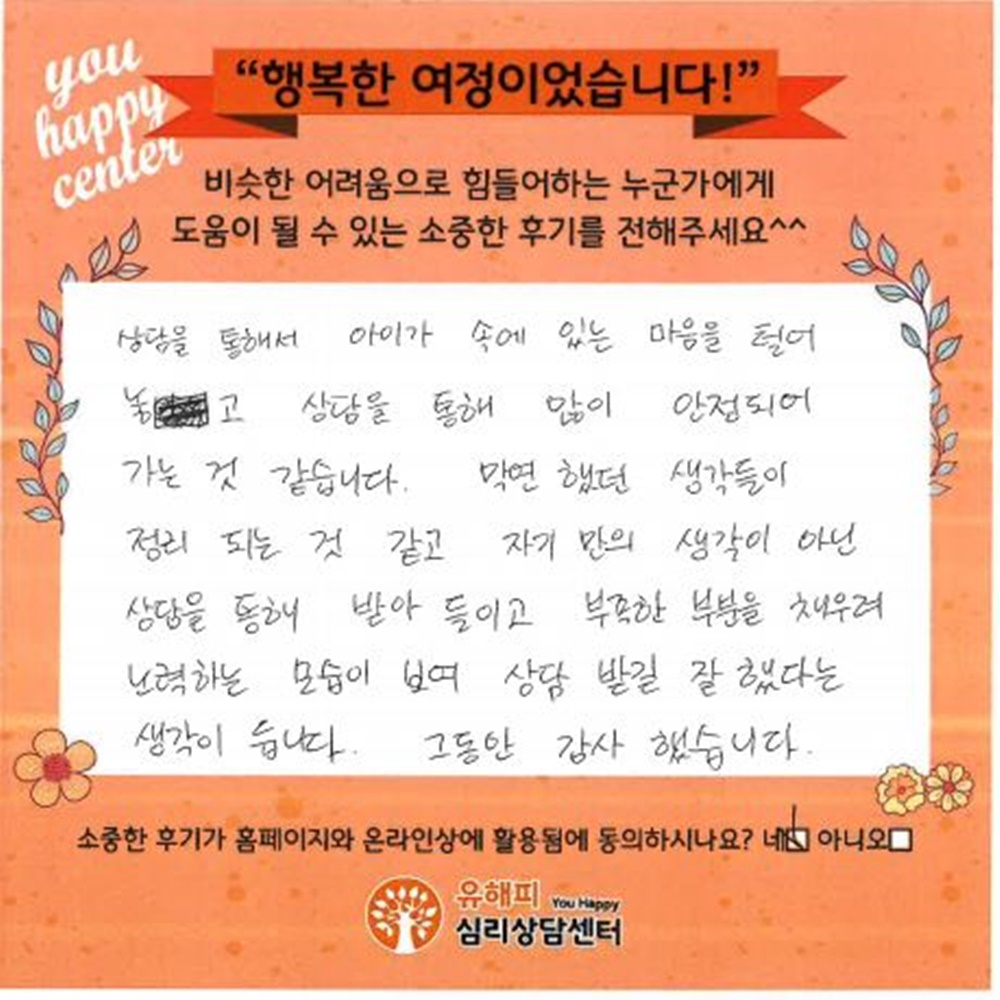 you
happy
center
“행복한 여정이었습니다!”
비슷한 어려움으로 힘들어하는 누군가에게
도움이 될 수 있는 소중한 후기를 전해주세요^^
상담을 통해서 아이가 속에 있는 마음을 털어
놓고 상담을 통해 많이 안정되어
가는 것 같습니다. 막연 했던 생각들이
정리 되는 것 같고 자기 만의 생각이 아닌
상담을 통해 받아 들이고 부족한 부분을 채우려
노력하는 모습이 보여 상담 받길 잘 했다는
생각이 듭니다. 그동안 감사 했습니다.
소중한 후기가 홈페이지와 온라인상에 활용됨에 동의하시나요? 네 아니오
유해피 You Happy
심리상담센터